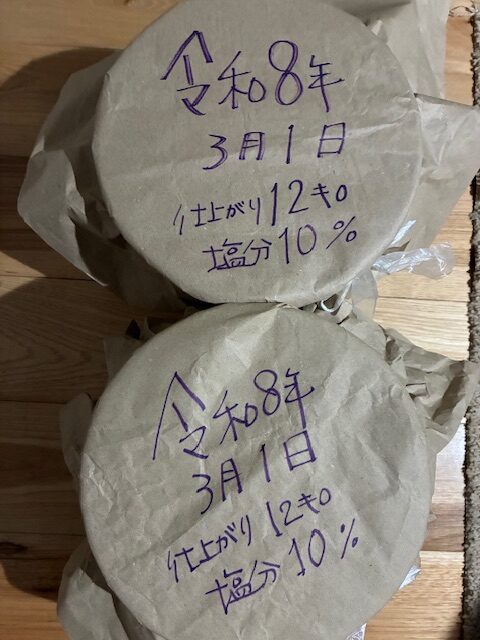 令和8年
3月1日
仕上がり12キロ
塩分10%
令和8年
3月1日
仕上がり12キロ
塩分10%